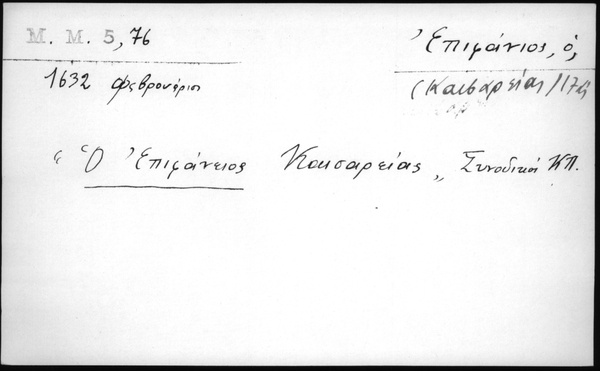 M. M. 5, 76
Ἐπιφάνιος, ὁ,
1632 Φεβρουάριος
(Καισαρείας) 17
"Ὁ Ἐπιφάνειος Καισαρείας" Συνοδικά ΚΠ.